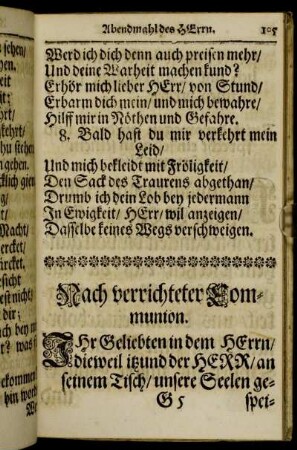 Abendmahl des HErrn. 105
Werd ich dich denn auch preisen mehr/
Und deine Warheit machen kund?
Erhör mich lieber HErr/ von Stund/
Erbarm dich mein/ und mich bewahre/
Hilff mir in Nöthen und Gefahre.
8. Bald hast du mir verkehrt mein
Leid/
Und mich bekleidt mit Fröligkeit/
Den Sack des Traurens abgethan/
Drumb ich dein Lob bey jedermann
In Ewigkeit/ HErr/ wil anzeigen/
Dasselbe keines Wegs verschweigen.
Nach verrichteter Com-
munion.
IHr Geliebten in dem HErrn/
dieweil itzund der HERR/ an
seinem Tisch/ unsere Seelen ge-
G 5 spei-